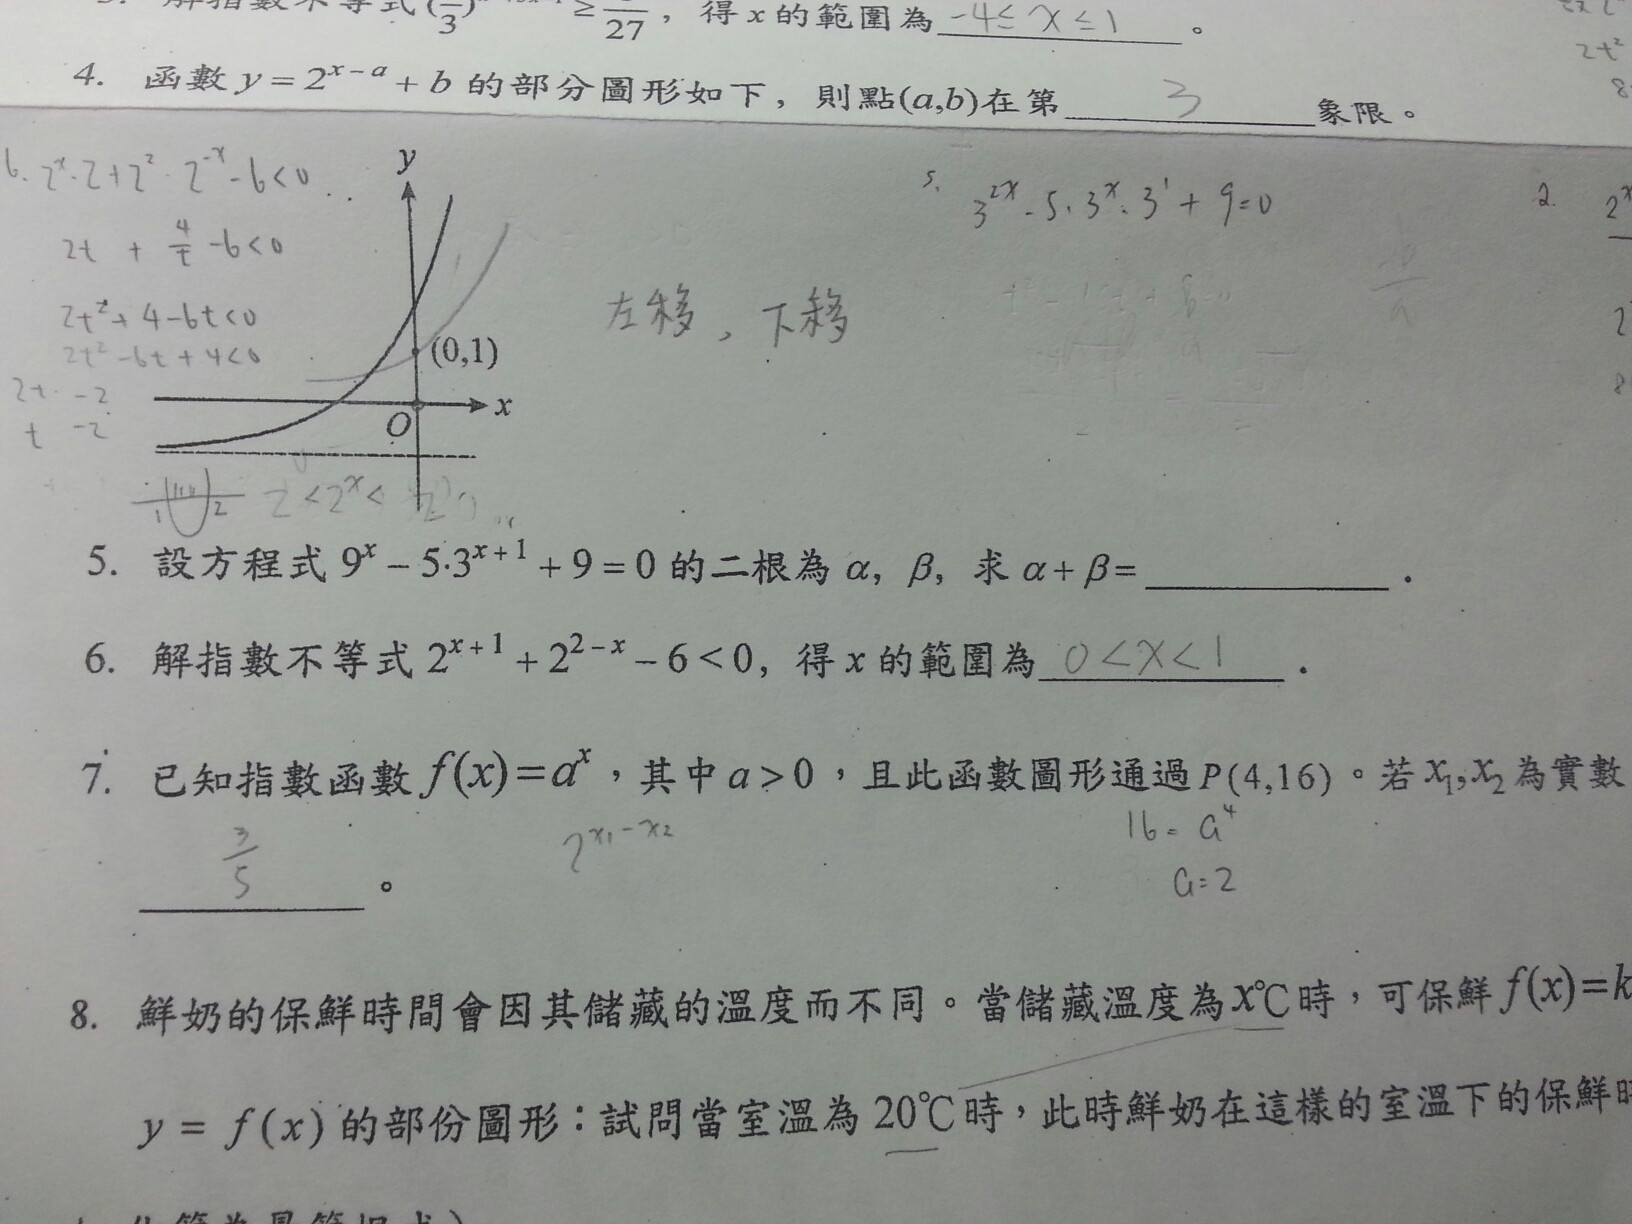 3. 解指數不等式 ≥ /27 , 得 x 的範圍為 -4≤x≤1 。
4. 函數 y = 2^{x-a} + b 的部分圖形如下，則點(a,b)在第 3 象限。
6. 2^x·2+2^2·2^{-x}-6<0
2t + 4/t -6<0
2t²+4-6t<0
2t²-6t+4<0
2t -2
t -2
y
(0,1)
x
O
左移，下移
5. 3^{2x}-5·3^x·3^1+9=0
2.
1 2
2^x<
5. 設方程式 9^x − 5·3^{x+1} + 9 = 0 的二根為 α, β, 求 α + β = .
6. 解指數不等式 2^{x+1} + 2^{2−x} − 6 < 0, 得 x 的範圍為 0<x<1 .
7. 已知指數函數 f(x)=a^x，其中 a > 0，且此函數圖形通過 P(4,16)。若 x₁,x₂ 為實數
3/5 。
2^{x1-x2}
16=a^4
a=2
8. 鮮奶的保鮮時間會因其儲藏的溫度而不同。當儲藏溫度為 x℃ 時，可保鮮 f(x)=k
y = f(x) 的部份圖形：試問當室溫為 20℃ 時，此時鮮奶在這樣的室溫下的保鮮時